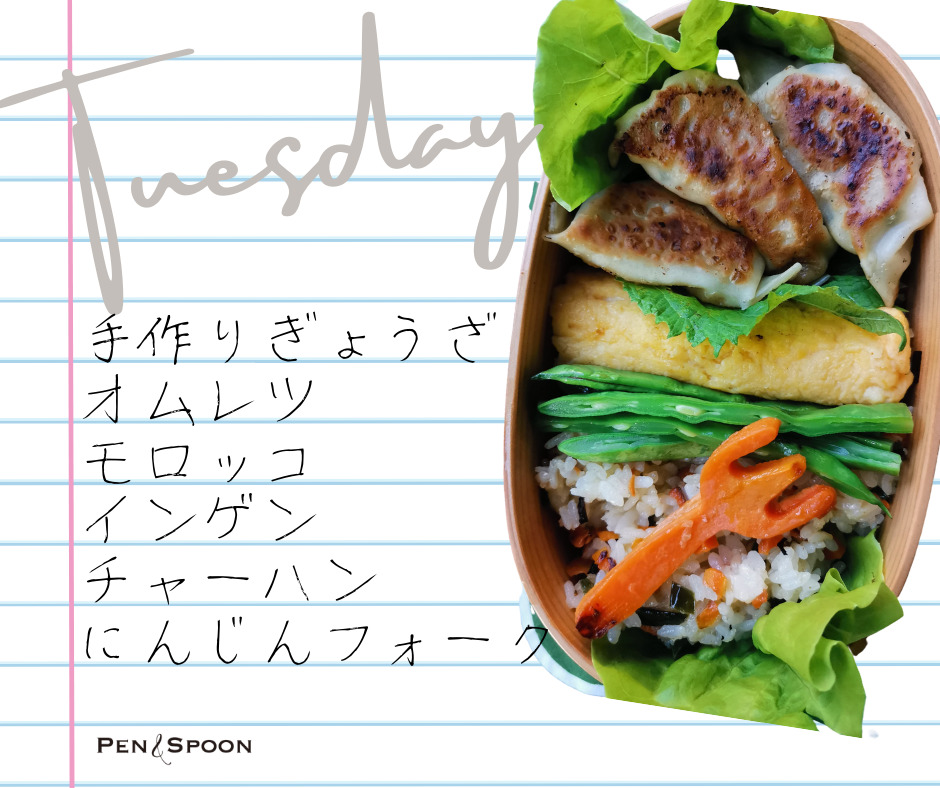 Tuesday
手作りぎょうざ
オムレツ
モロッコ
インゲン
チャーハン
にんじんフォーク
PEN&SPOON